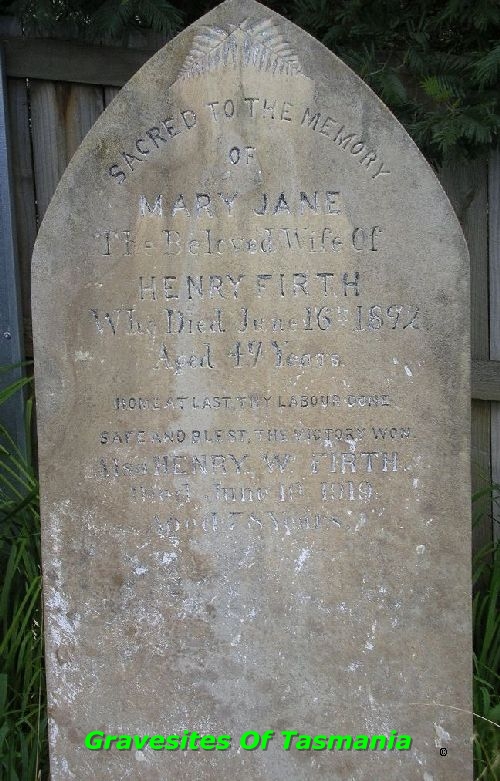 SACRED TO THE MEMORY
OF
MARY JANE
The Beloved Wife Of
HENRY FIRTH
Who Died June 16th 1892
Aged 47 Years.
HOME AT LAST, THY LABOUR DONE
SAFE AND BLEST, THE VICTORY WON.
Also HENRY. W. FIRTH.
Died June 10 1919.
Aged 78 Years.
Gravesites Of Tasmania
©